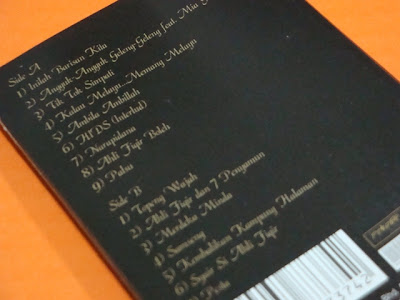 Side A
1) Inilah Barisan Kita
2) Angguk-Angguk Geleng-Geleng feat. Mia
3) Tik Tok Simpati
4) Kalau Melayu...Memang Melayu
5) Ambila Ambillah
6) HFDS (Interlud)
7) Narapidana
8) Ahli Fiqir Boleh
9) Palsu
Side B
1) Topeng Wajah
2) Ahli Fiqir dan 7 Penyamun
3) Merdeka Minda
4) Samseng
5) Kembalikan Kampung Halaman
6) Syair Si Ahli Fiqir